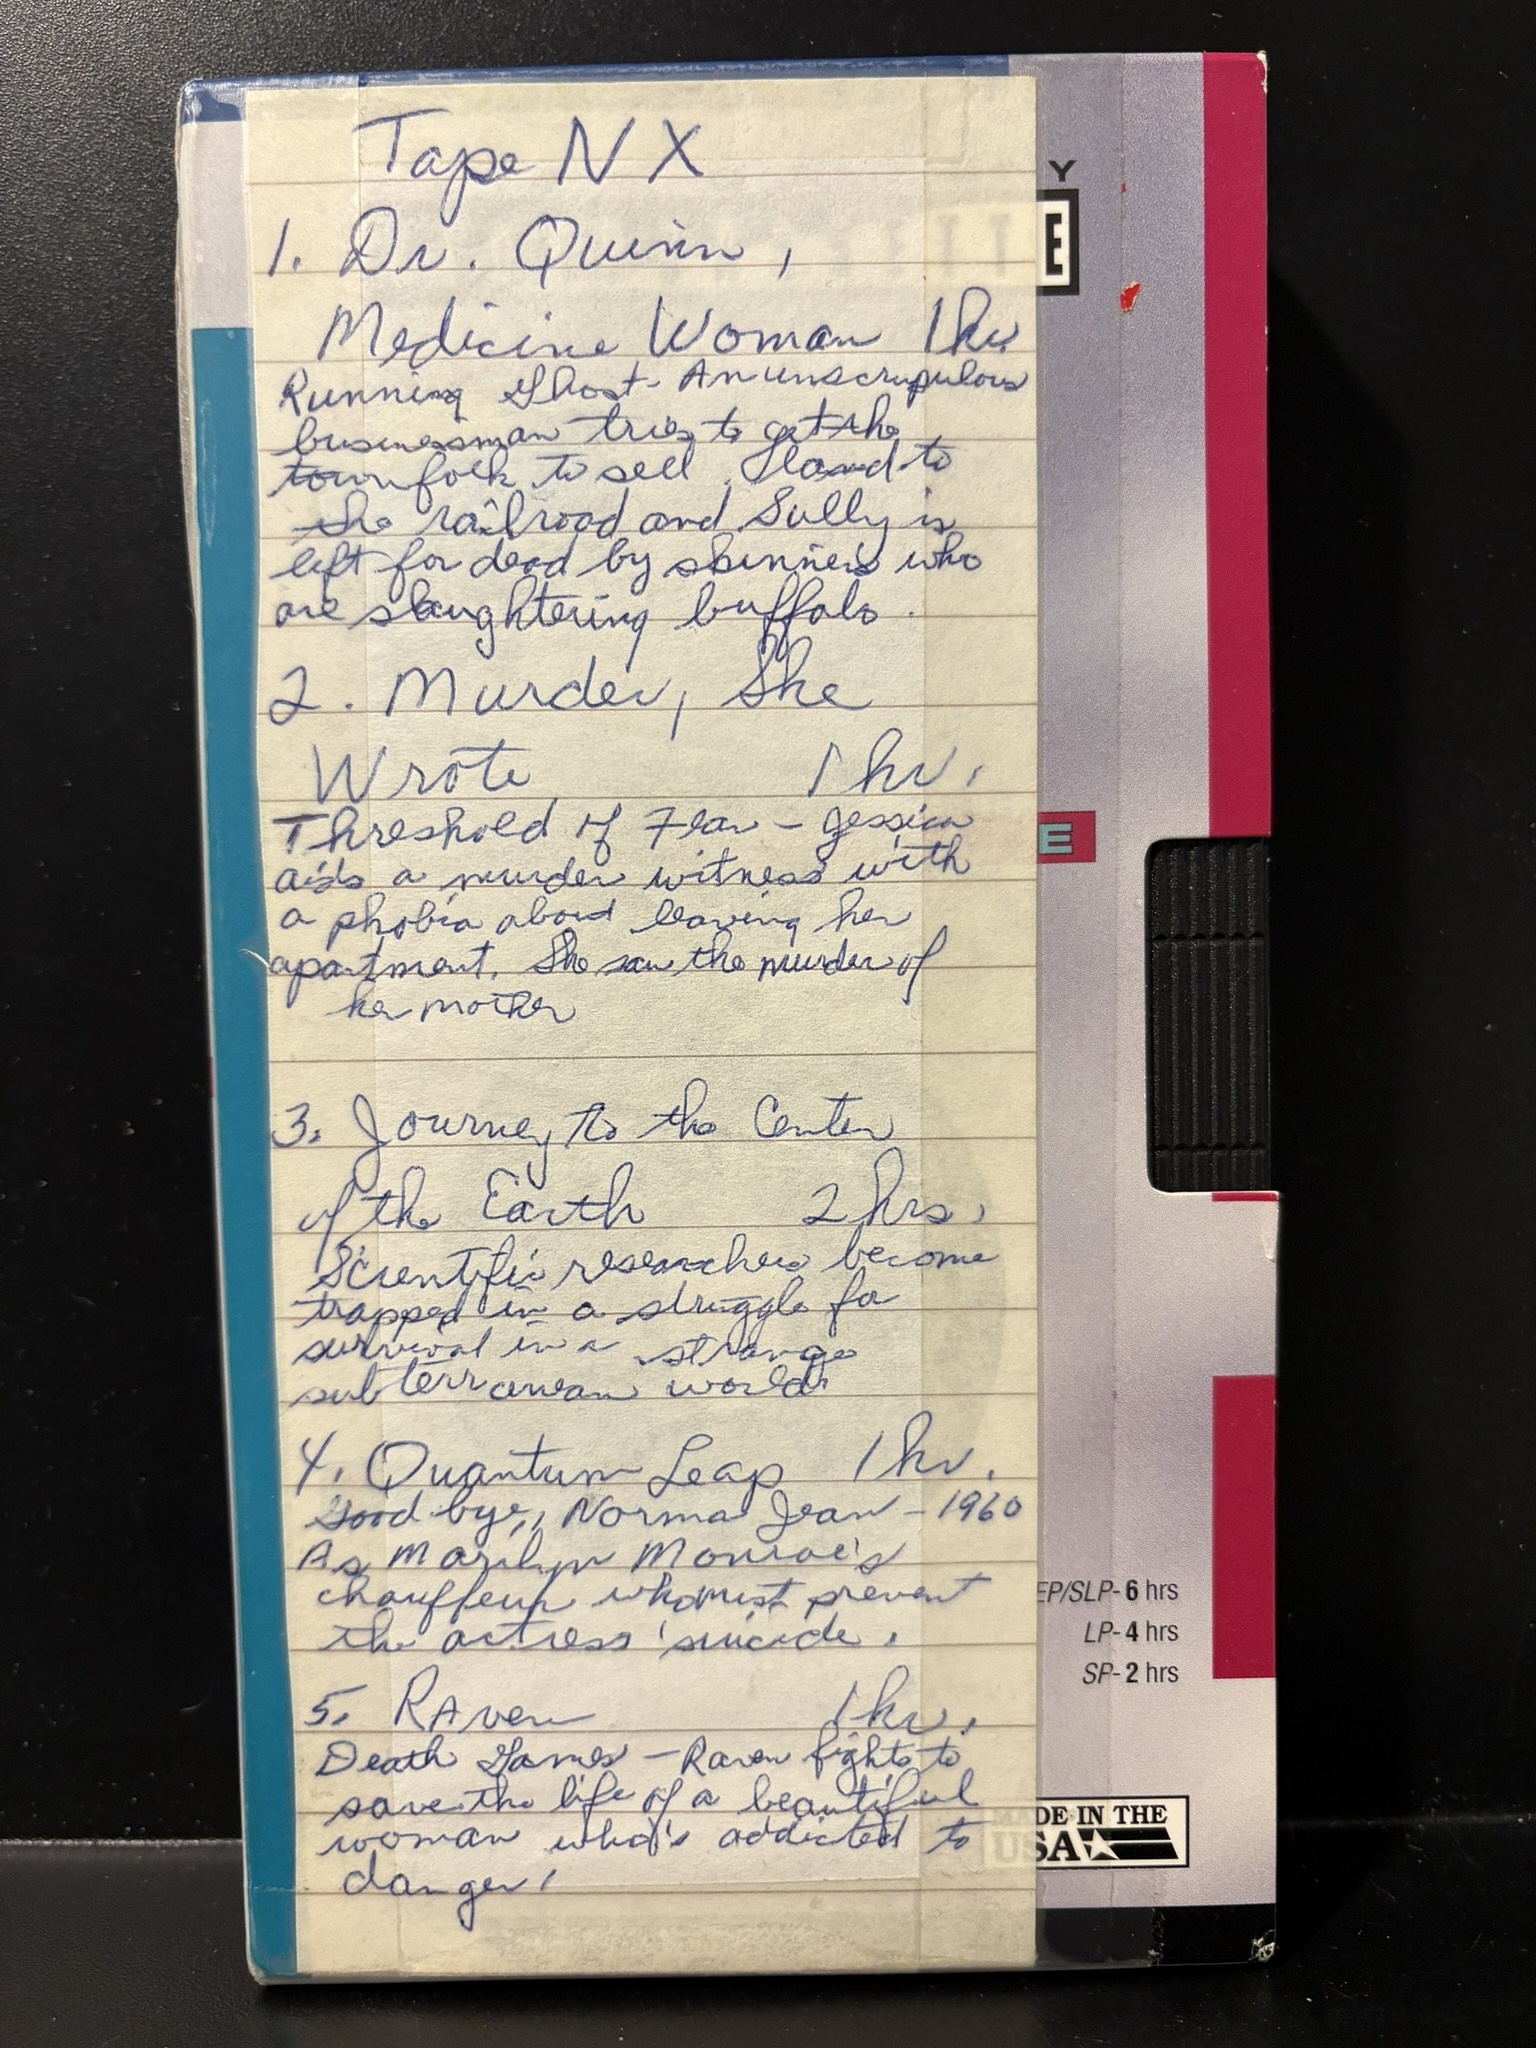 Tape NX
1. Dr. Quinn,
Medicine Woman 1 hr.
Running Ghost - An unscrupulous
businessman tries to get the
townfolk to sell land to
the railroad and Sully is
left for dead by skinners who
are slaughtering buffalo.
2. Murder, She
Wrote 1 hr.
Threshold of Fear - Jessica
aids a murder witness with
a phobia about leaving her
apartment. She saw the murder of
her mother
3. Journey to the Center
of the Earth 2 hrs.
Scientific researchers become
trapped in a struggle for
survival in a strange
subterranean world.
4. Quantum Leap 1 hr.
Good bye, Norma Jean - 1960
As Marilyn Monroe's
chauffeur who must prevent
the actress' suicide.
5. RAven 1 hr.
Death Games - Raven fights to
save the life of a beautiful
woman who's addicted to
danger.
Y
E
E
EP/SLP- 6 hrs
LP- 4 hrs
SP- 2 hrs
MADE IN THE
USA